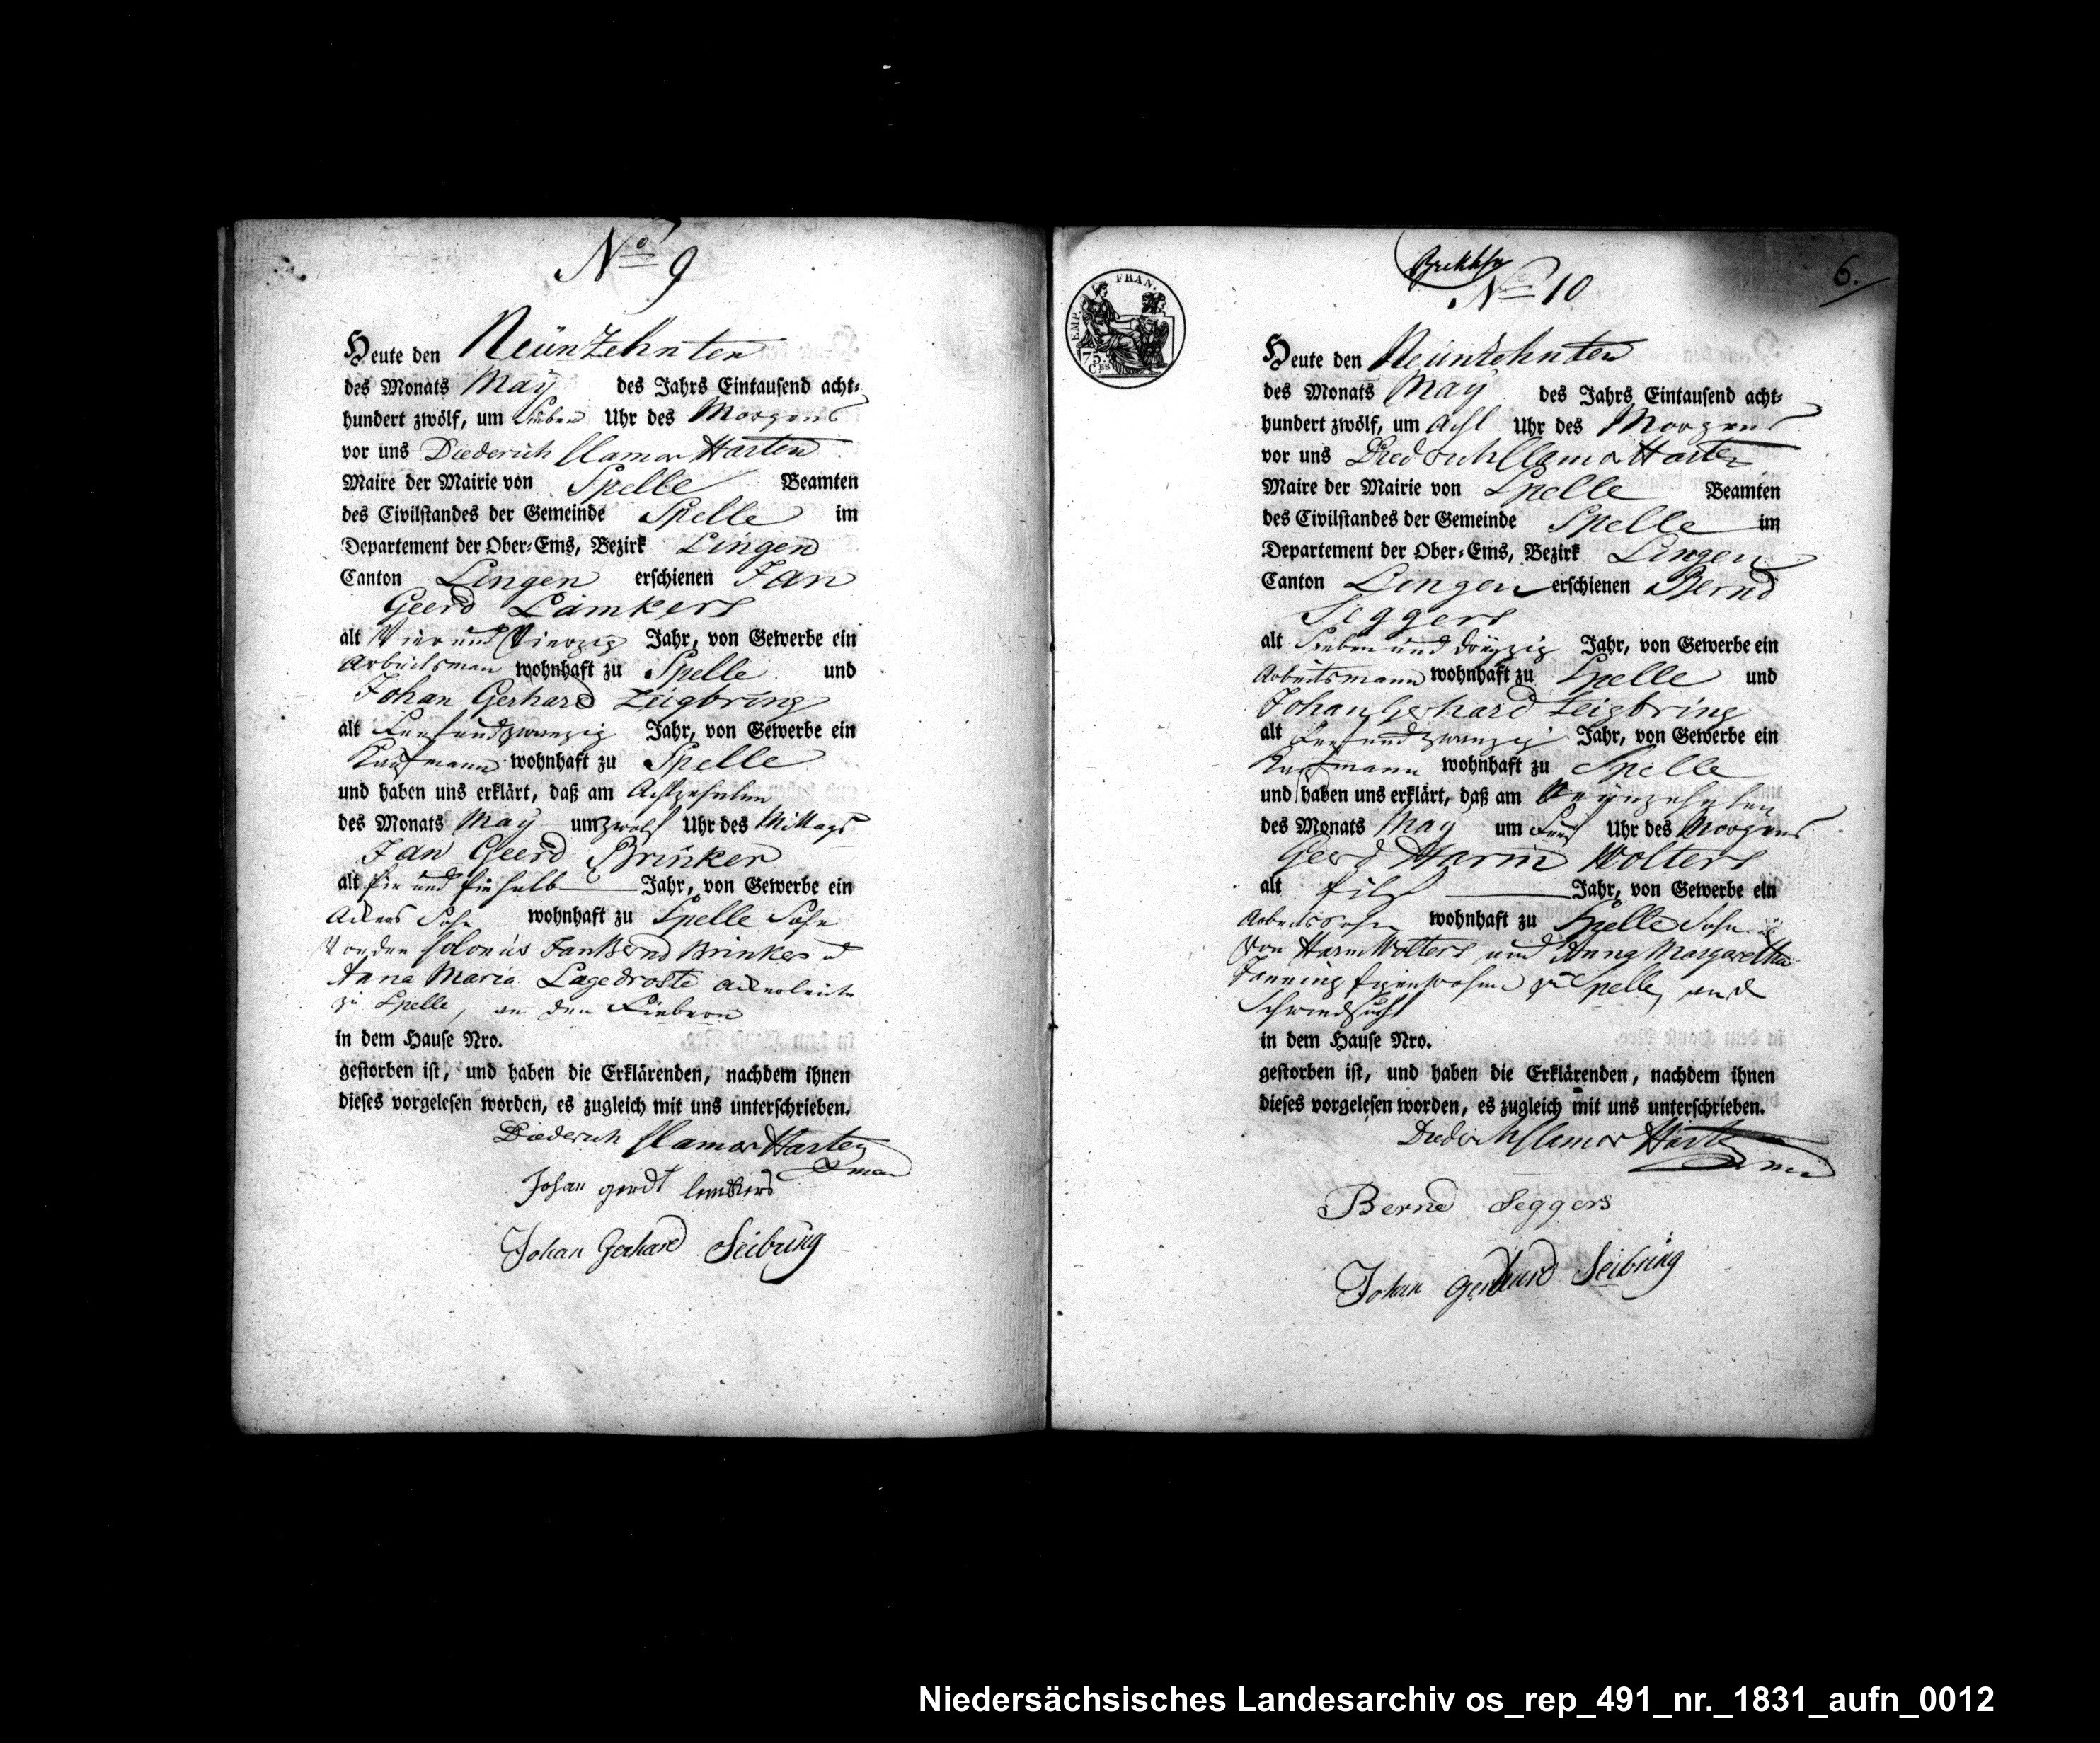 No 9
Heute den Neünzehnten
des Monats May des Jahrs Eintausend acht-
hundert zwölf, um Sieben Uhr des Morgens
vor uns Diederich Clamor Harten
Maire der Mairie von Spelle Beamten
des Civilstandes der Gemeinde Spelle im
Departement der Ober-Ems, Bezirk Lingen
Canton Lingen erschienen Jan
Geerd Lämkers
alt Vier und Vierzig Jahr, von Gewerbe ein
Arbeitsman wohnhaft zu Spelle und
Johan Gerhard Zeigbring
alt Fünf und zwanzig Jahr, von Gewerbe ein
Kaufmann wohnhaft zu Spelle
und haben uns erklärt, daß am Achtzehnten
des Monats May um zwölf Uhr des Mittags
Jan Geerd Brinker
alt und Jahr, von Gewerbe ein
Ackers Sohn wohnhaft zu Spelle Sohn
Von den Colonus Jan Bernd Brinker
Anna Maria Lagedroste Ackerleute
zu Spelle, an den Fiebern
in dem Hause Nro.
gestorben ist, und haben die Erklärenden, nachdem ihnen
dieses vorgelesen worden, es zugleich mit uns unterschrieben.
Diederich Clamor Harten
Johan gerdt lemkers
Johan Gerhard Seibring
FRAN.
EMP.
75.
CES
6.
No 10
Heute den Neünzehnten
des Monats May des Jahrs Eintausend acht-
hundert zwölf, um Acht Uhr des Morgens
vor uns Diedrich Clamor Harten
Maire der Mairie von Spelle Beamten
des Civilstandes der Gemeinde Spelle im
Departement der Ober-Ems, Bezirk Lingen
Canton Lingen erschienen Bernd
Seggers
alt Sieben und dreyzig Jahr, von Gewerbe ein
Arbeitsmann wohnhaft zu Spelle und
Johan Gerhard Zeigbring
alt Fünf und zwanzig Jahr, von Gewerbe ein
Kaufmann wohnhaft zu Spelle
und haben uns erklärt, daß am Neünzehnten
des Monats May um Fünf Uhr des Morgens
Geerd Harm Wolters
alt Jahr, von Gewerbe ein
Arbeitssohn wohnhaft zu Spelle Sohn
Von Harm Wolters und Anna Margaretha
zu Spelle, an d
Schwindsucht
in dem Hause Nro.
gestorben ist, und haben die Erklärenden, nachdem ihnen
dieses vorgelesen worden, es zugleich mit uns unterschrieben.
Diedrich Clamor Harten
Bernd Seggers
Johan Gerhard Seibring
Niedersächsisches Landesarchiv os_rep_491_nr._1831_aufn_0012